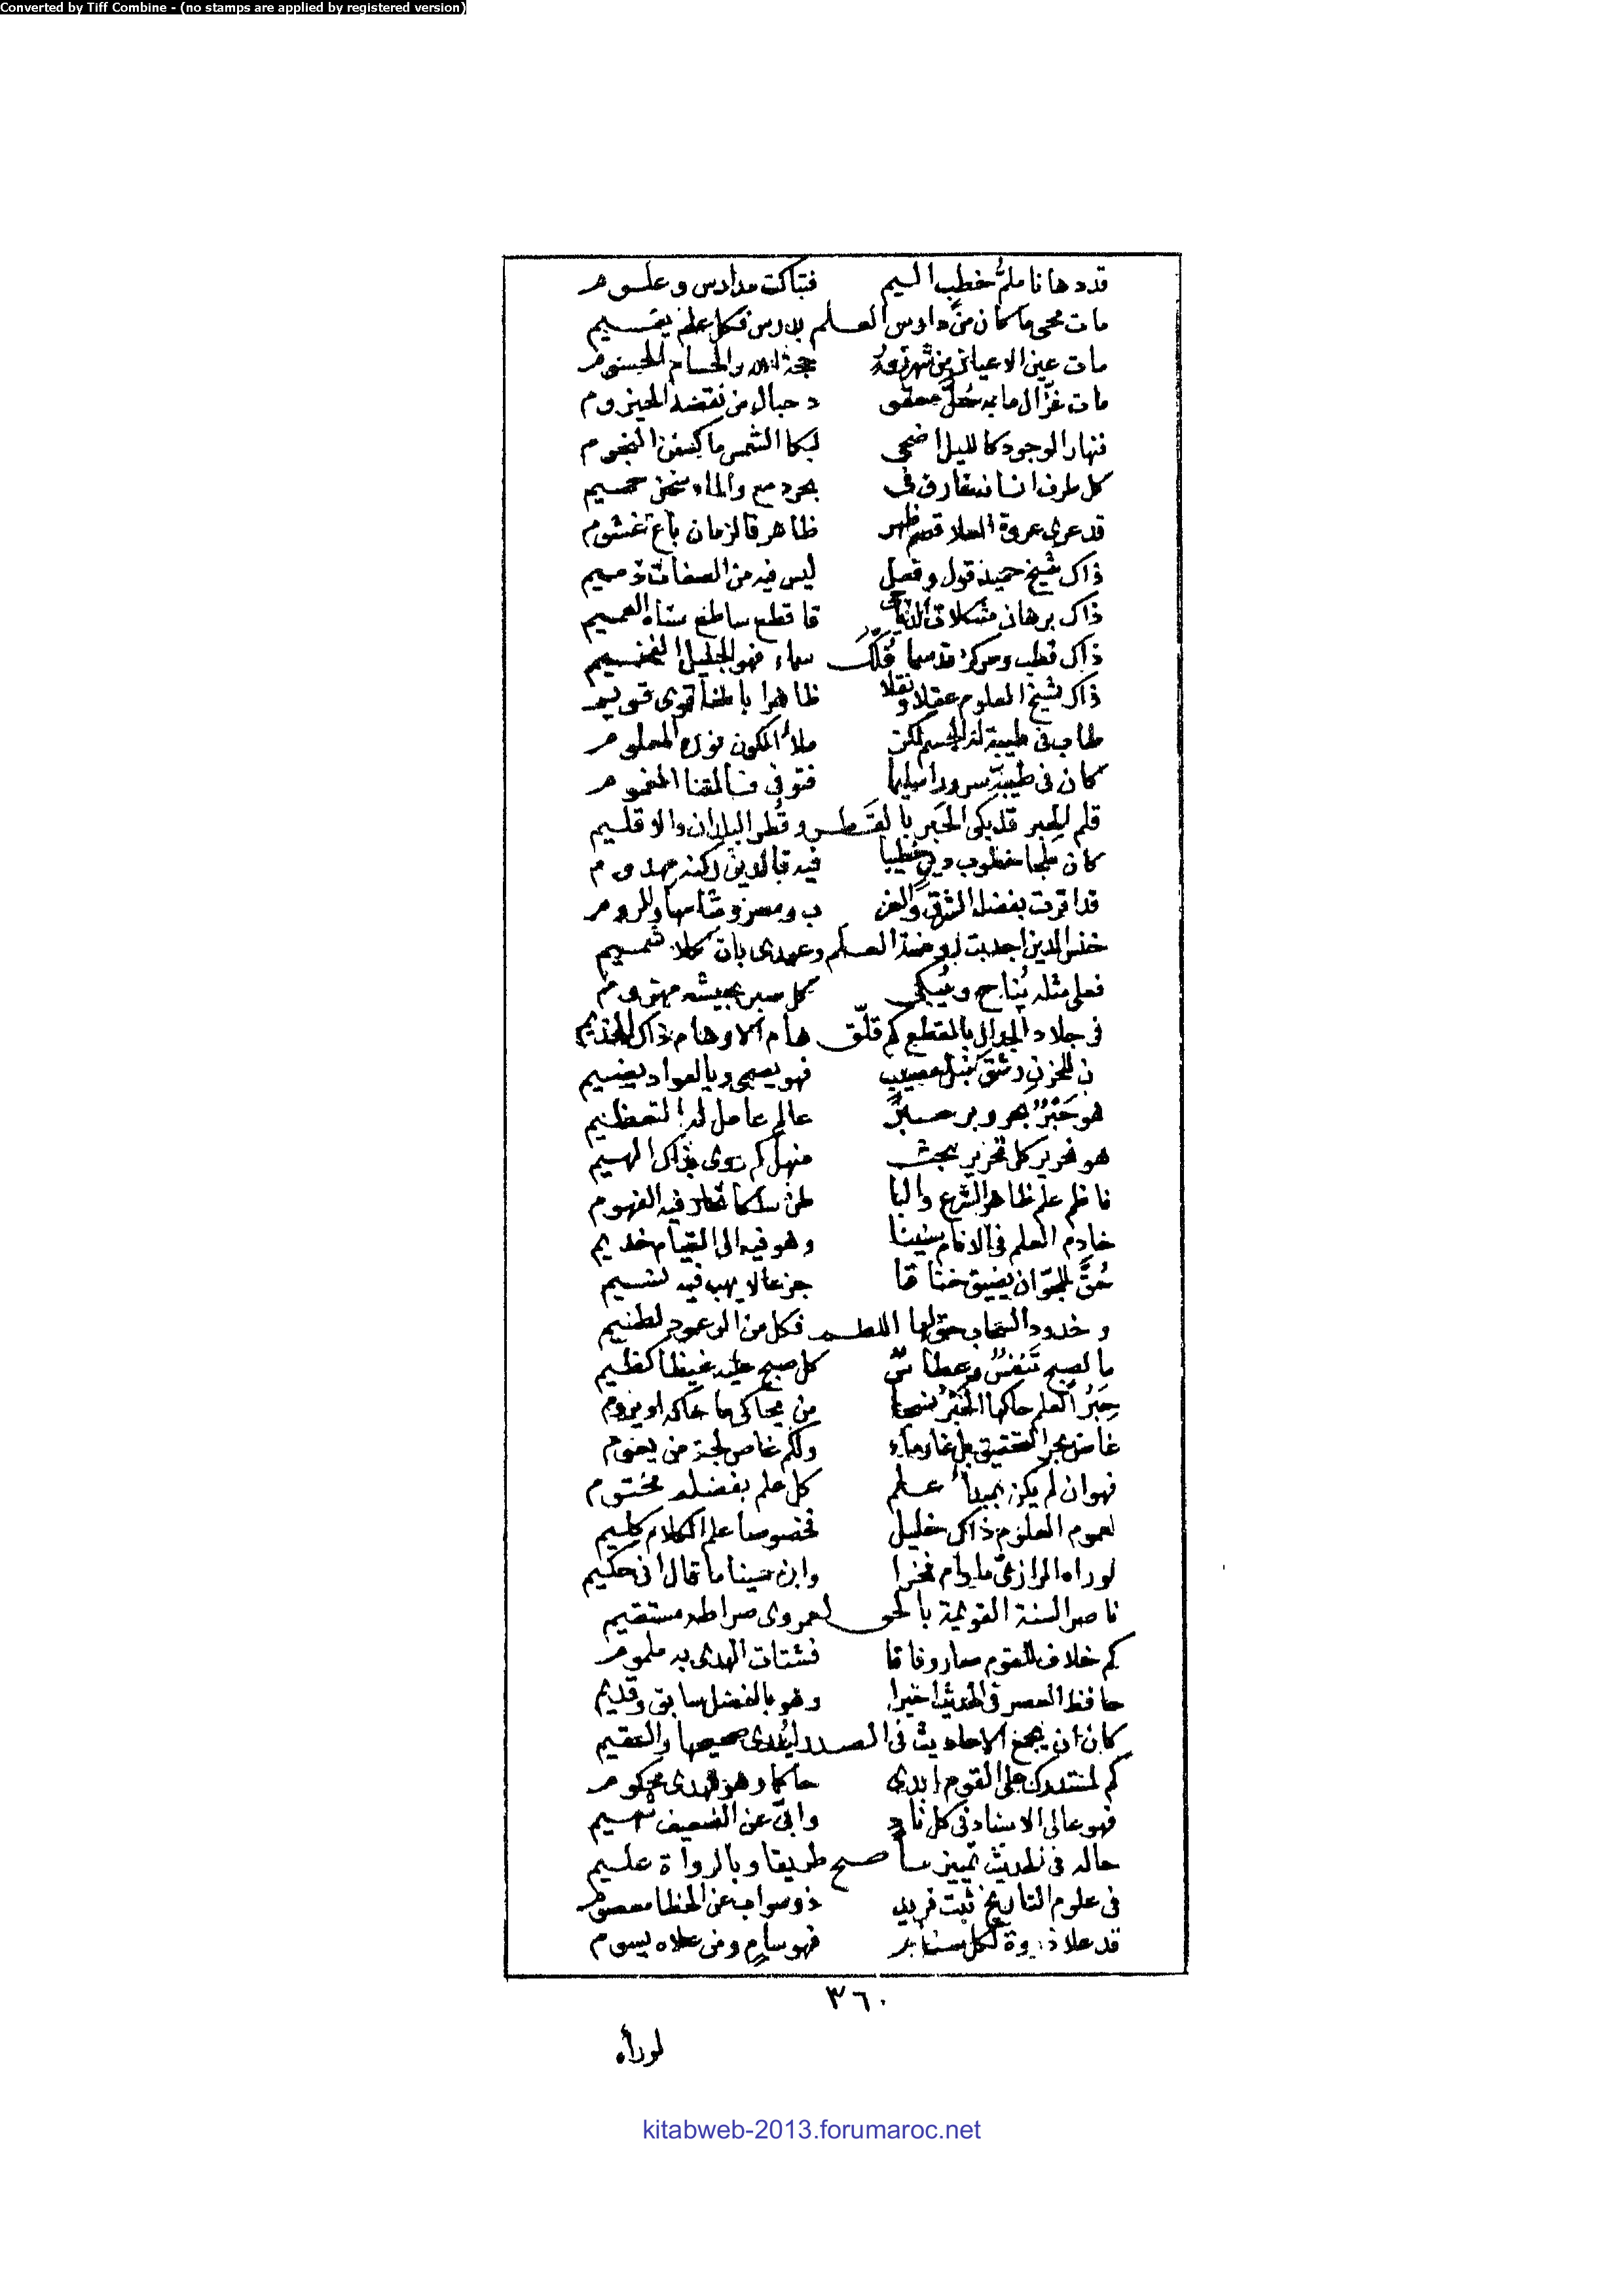 Converted by Tiff Combine - (no stamps are applied by registered version)
قد دهانا ملمّ خطب اليم فتباكت مدارس وعلوم
مات محي ما كان من دارس العلم بدرس فكل علم يقيم
مات عين الاعيان من شهرزور حجة الله والحسام الحسوم
مات غزال ما به حل معقو د حبال من نقضه الحيزوم
فنهار الوجود كالليل اضحى لبكا الشمس ما كسفن النجوم
كل طرف انسانه غارق في بحر دمع والماء سخن حميم
قد عرى عروة العلا قصم ظهر ظاهر فالزمان باغ غشوم
ذاك شيخ حميد قول وفعل ليس فيه من الصفات ذميم
ذاك برهان مشكلات قاطع ساطع سناه العميم
ذاك قطب ومركز قد سما فلك سماء فهو الجليل الفخيم
ذاك شيخ العلوم عقلا ونقلا ظاهرا باطنا قوى قويم
طاب في طيبة له الجسم لكن ملأ الكون نوره المعلوم
كان في طيبة سرورا سليما فتوفي
قلم الحبر قد بكى الحبر بالقطر وقطر البلدان والاقليم
كان ملجا خطوب دين خطيبا فيه فالدين ركنه مهدوم
قد اقرت بفضله الشرق والغر ب ومصر وشامها والروم
اجدبت روضة العلم وعهدى بان كلا شميم
فعلى مثله يُناح ويُبكى كل صبر بجيشه مهزوم
في جلاد الجدال بالقطع كم فلّق هام الاوهام ذاك
ن للحزن رشق نبل مصيب فهو يصمي وبالفواد يضيم
هو حَبْرٌ بحر وبر عالم عامل له التعظيم
هو نحرير كل تحرير بحث منهل كم روى بذاك الهيم
ناظم علم ظاهر الشرع والبا طن سلكا تحار فيه الفهوم
خادم العلم في الانام سنينا وهو فيه الى القيام خديم
حُقَّ للجوّ ان يضيق خناقا جزعا لا يهب فيه نسيم
وخدود السحاب حق لها اللطم فكل من الرعود لطيم
ما لصبح تَنَفُّسٌ وعطاس كل صبح عليه غيظا كظيم
حِبَرُ العلم حاكها الحَبْرُ نسجا من يحاكي ما حاكه او يروم
غاض بحر التحقيق بل غار ماء ولكم غاص لجة من يعوم
فهو ان لم يكن بمبدأ علم كل علم بفضله مختوم
لعموم العلوم ذاك خليل فخصوصا علم الكلام كليم
لو راه الرازي ما رام فخرا وابن سينا ما قال اني حكيم
ناصر السنة القويمة بالحق لعمروى صراطه مستقيم
كم خلاف للقوم صار وفاقا فشتات الهدى به ملموم
حافظ العصر في الحديث اخيرا وهو بالفضل سابق وقديم
كان ان يجمع الاحاديث في الصدر ليُبدى صحيحها والسقيم
كم لمستدرك على القوم ابدى حاكما وهو محكوم
فهو عالي الاسناد في كل ناد وابيّ عن الضعيف
حاله في الحديث تمييز ما صح طريقا وبالرواة عليم
في علوم التاريخ ثبت فريد ذو صواب عن الخطا معصوم
قد علا ذروة لكل سنام فهو سامٍ ومن علاه يسوم
٣٦٠
لو رأه
kitabweb-2013.forumaroc.net